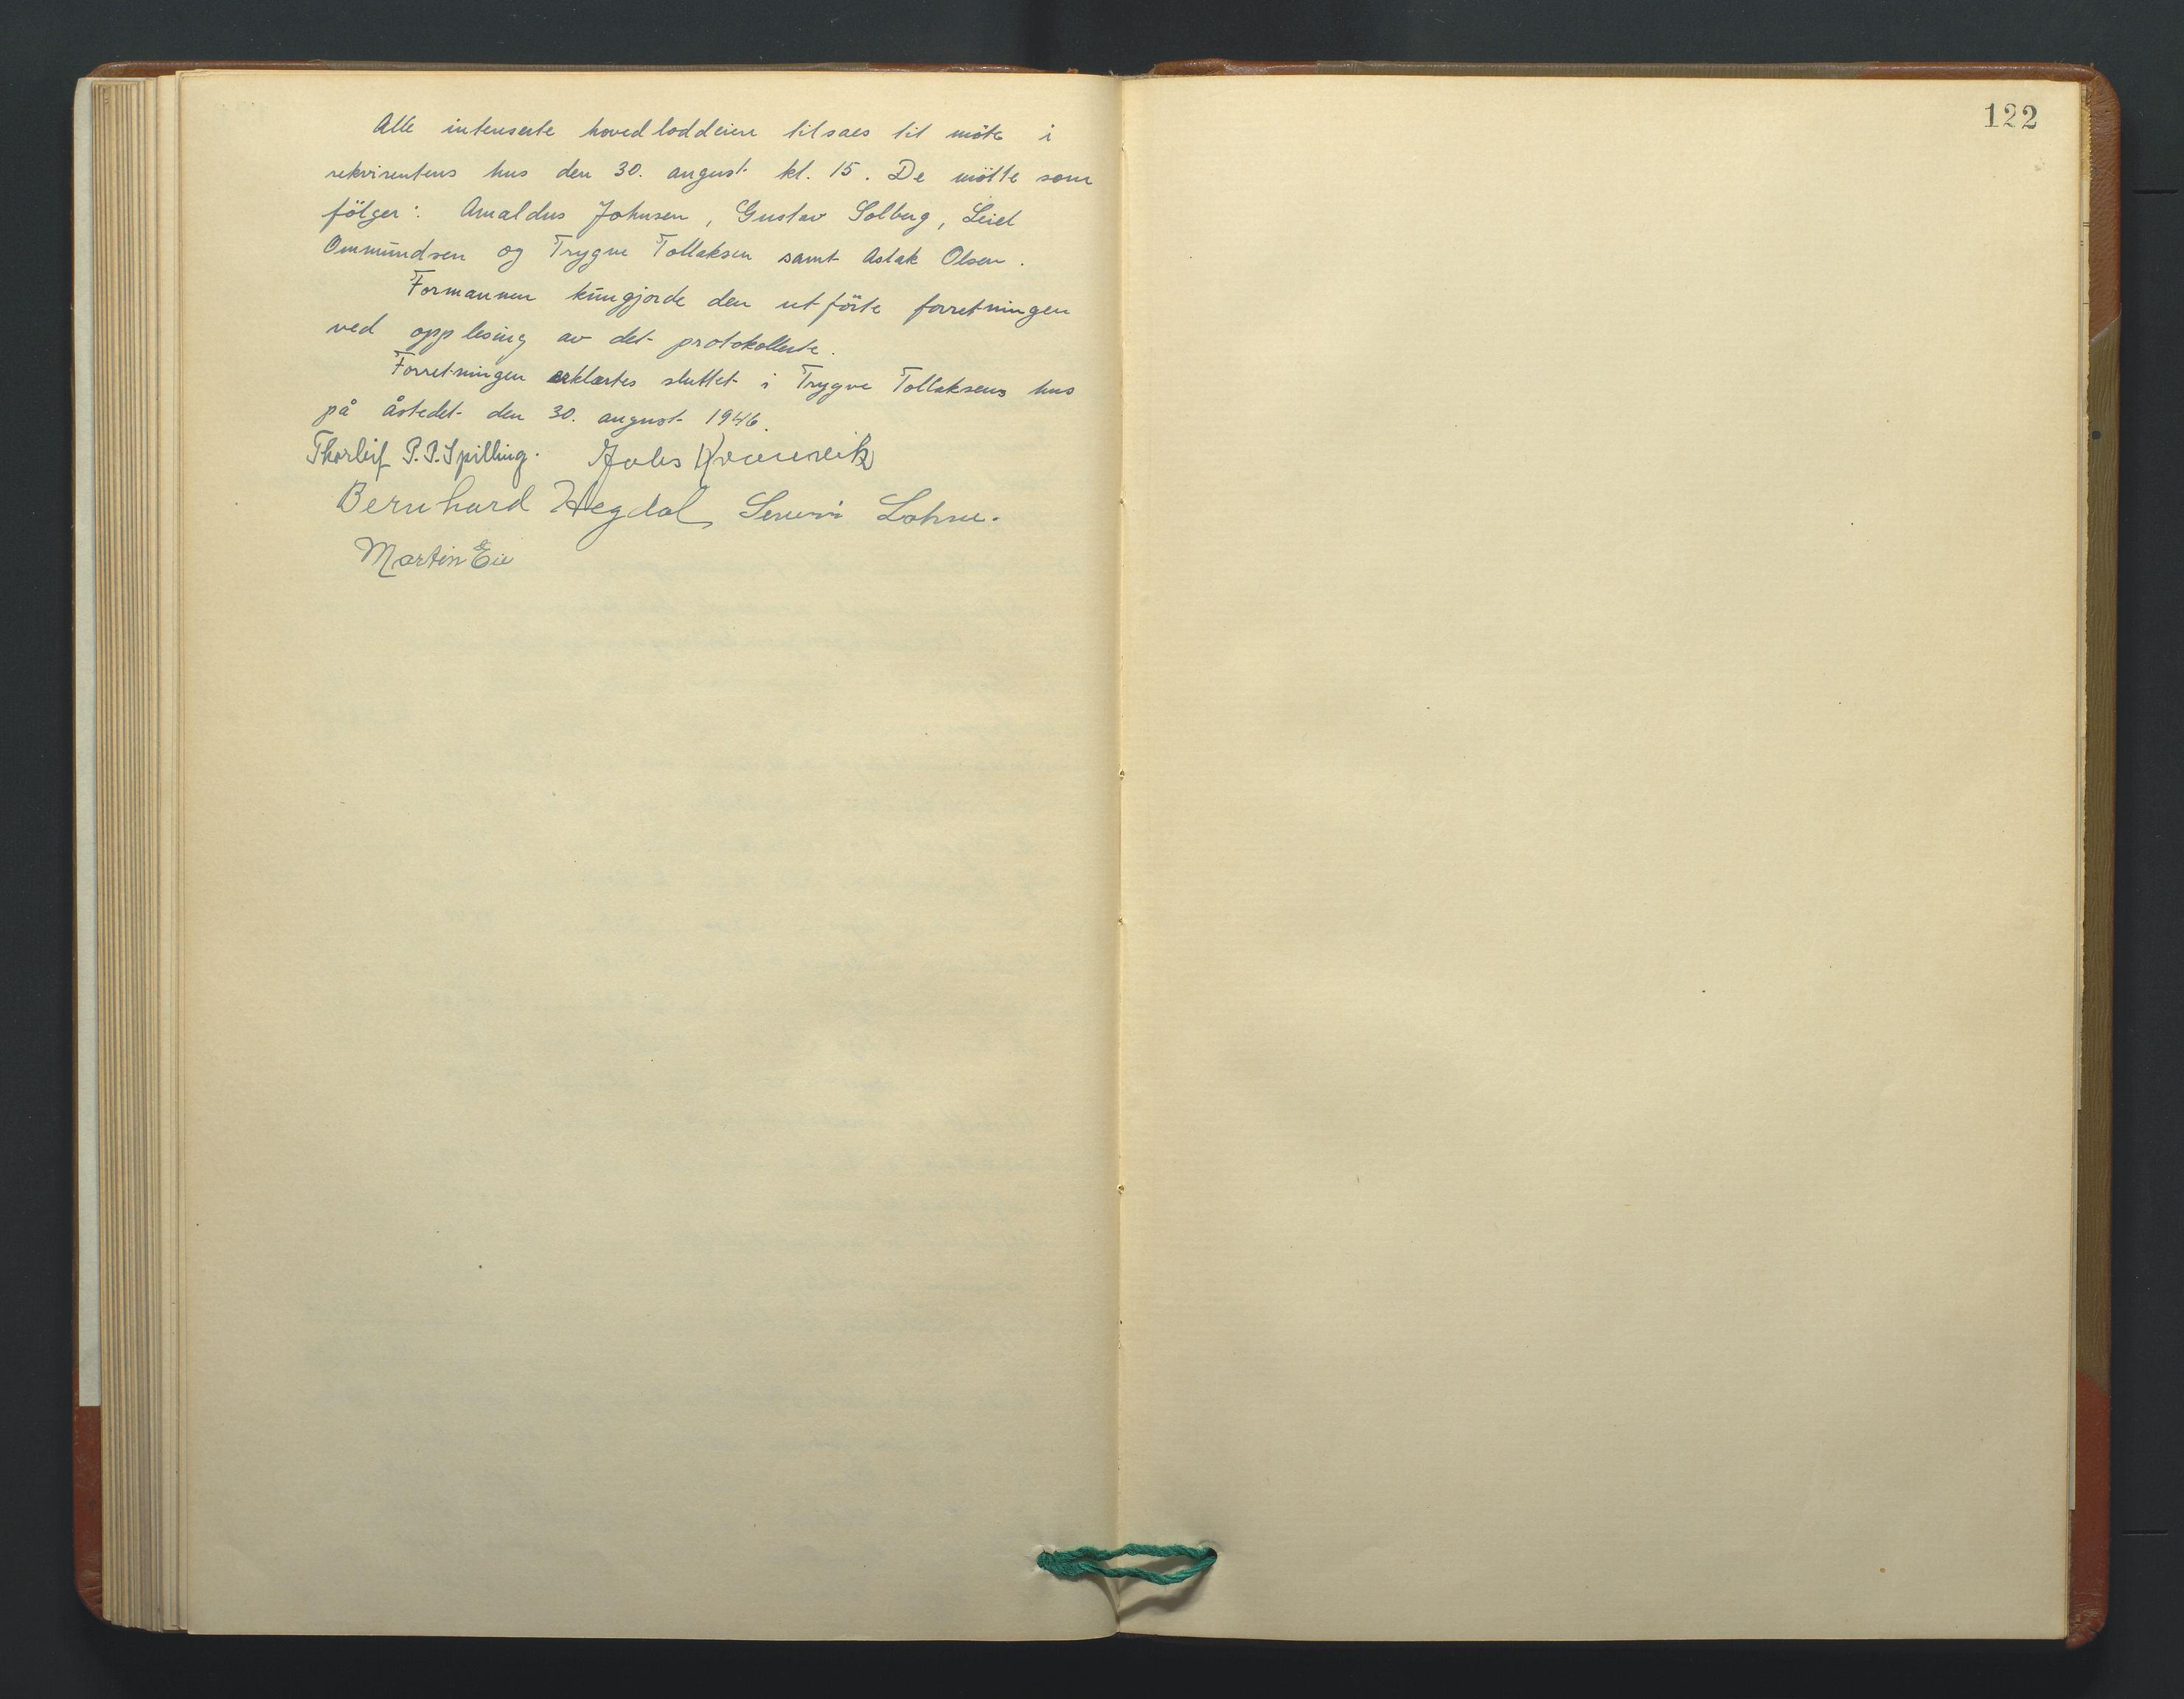 122
Alle interserte hovedloddeiere tilsaes til möte i
rekvirentens hus den 30. august kl. 15. De mötte som
fölger: Arnaldus Johnsen, Gustav Solberg, Leiel
Ommundsen og Trygve Tollaksen samt Aslak Olsen.
Formannen kungjorde den utförte forretningen
ved opplesing av det protokollerte.
Forretningen erklærtes sluttet i Trygve Tollaksens hus
på åstedet den 30. august 1946.
Thorleif P. P. Spilling.
Bernhard Hegdal Lohne.
Martin Eie